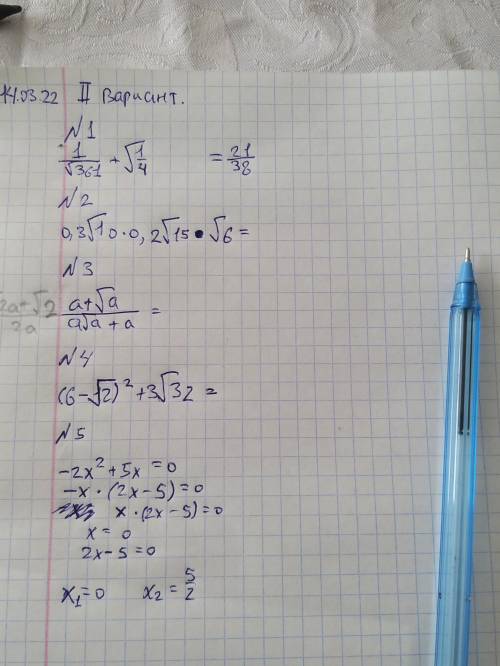 14.03.22 II Вариант.
№1
1/√361 + √1/4 = 21/38
№2
0,3√10 · 0,2√15 · √6 =
№3
a+√a / a√a + a =
№4
(6-√2)² + 3√32 =
№5
-2x² + 5x = 0
-x · (2x - 5) = 0
x · (2x - 5) = 0
x = 0
2x - 5 = 0
x₁ = 0 x₂ = 5/2